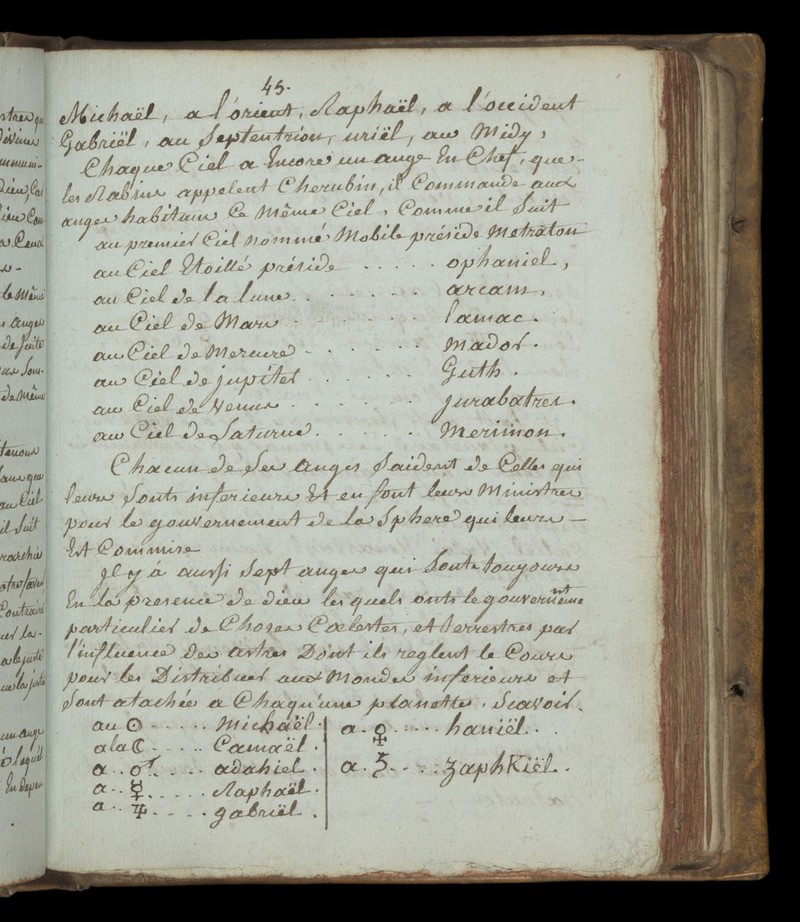 45.
Michaël, a l'orient, Raphaël, a l'occident
Gabriël, au Septentrion, uriël, au Midy,
Chaque Ciel a Encore un ange En Chef, que
les Rabins appelent Cherubin, il Commande aux
anges habitans Ce même Ciel, Comme il Suit
au premier Ciel nommé Mobile préside Metraton
au Ciel Etoillé préside ..... ophaniel,
au Ciel de la lune. ...... arcam,
au Ciel de Mars ...... lamac.
au Ciel de Mercure ...... Mador.
au Ciel de jupiter ...... Guth.
au Ciel de Venus ...... jurabatres.
au Ciel de Saturne ...... Merimon.
Chacun de Ses Anges Saident de Celles qui
leurs Sonts inferieurs Et en font leurs Ministres
pour le gouvernement de la Sphere qui leurs —
Est Commise
Il y à aussi Sept anges qui Sonts toujours
En la presence de dieu les quels onts le gouvernement
particulier de Choses Cœlestes, et terrestres par
l'influence des astres Dont ils reglent le Cours
pour les Distribuer aux Mondes inferieurs et
Sont atachés a Chaqu'une planette. Scavoir.
au ☉ ..... Michaël.
a la ☾ .... Camaël.
a .. ♂ .... adahiel.
a .. ☿ ..... Raphaël.
a .. ♃ .... gabriël.
a. ♀ .... haniël..
a. ♄ .... zaphKiël..